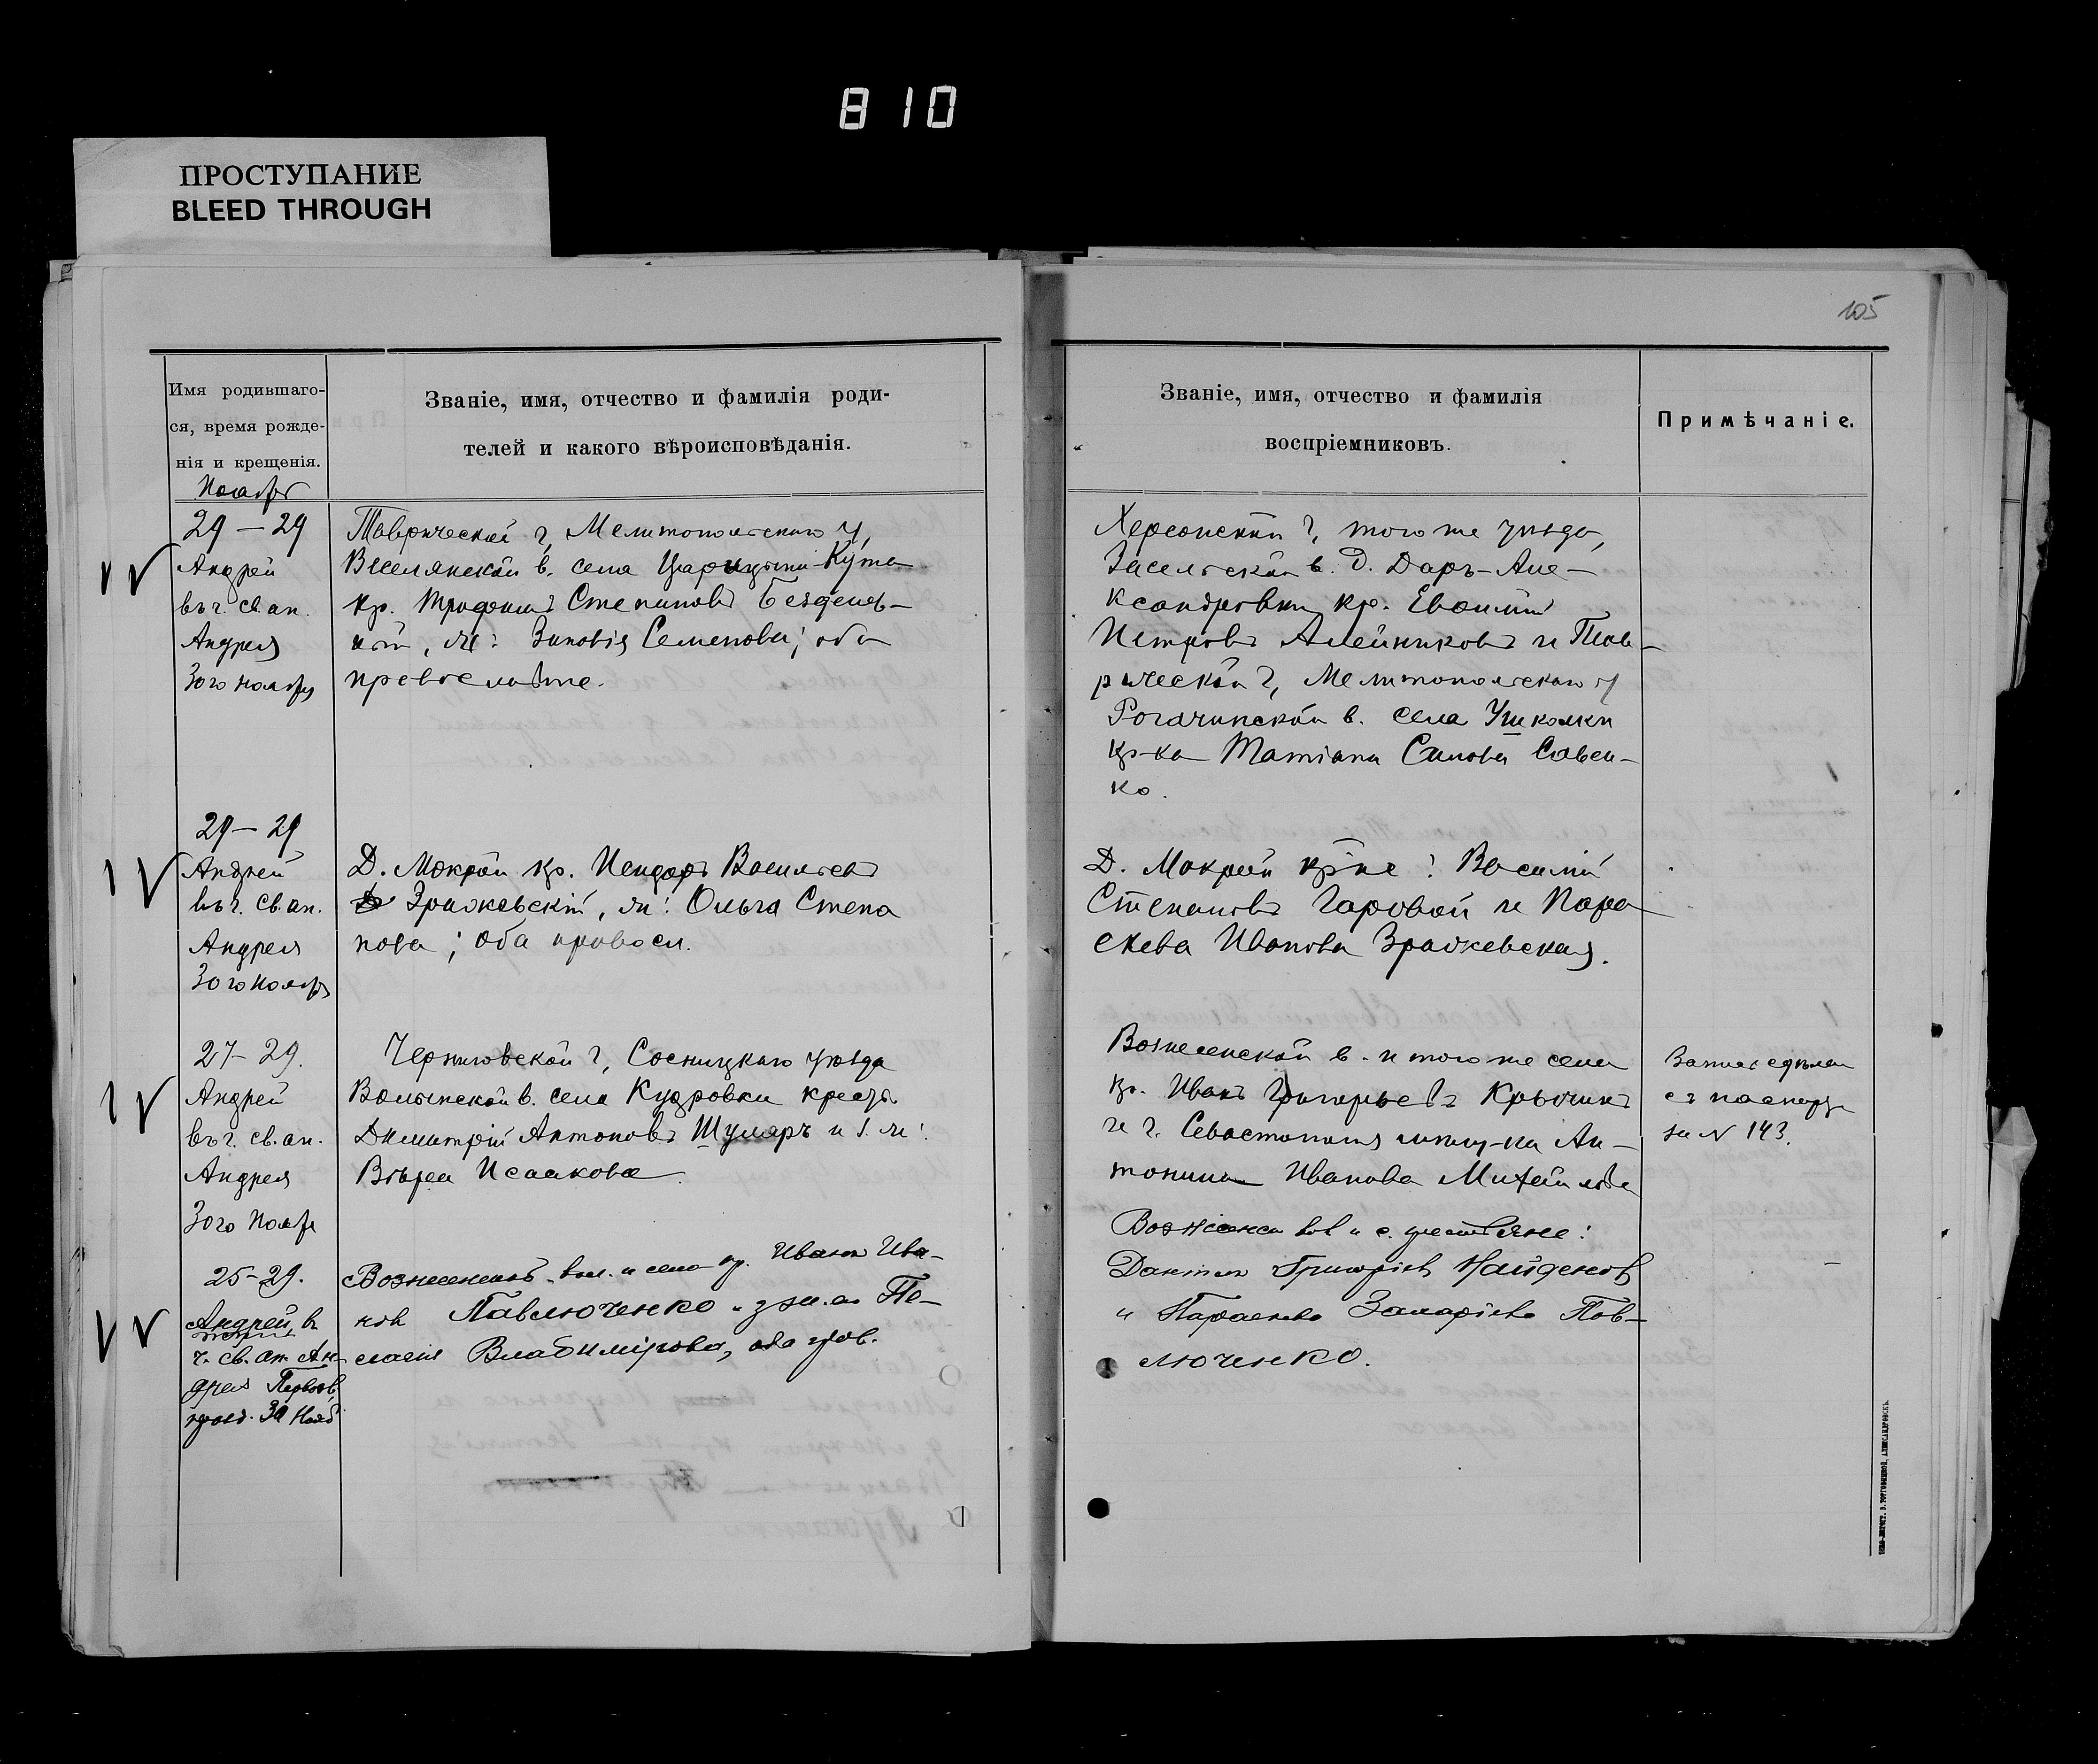 810
ПРОСТУПАНИЕ
BLEED THROUGH
105
Имя родившаго-
ся, время рожде-
нія и крещенія.
Званіе, имя, отчество и фамилія роди-
телей и какого вѣроисповѣданія.
Званіе, имя, отчество и фамилія
воспріемниковъ.
Примѣчаніе.
Ноябрь
29 – 29
Андрей
въ ч. св. ап.
Андрея
30го ноября
Таврической г, Мелитопольскаго у,
Веселянской в. села Царицына-Кута
кр. Трофимъ Степановъ
Зиновія Семенова; оба
православные.
Херсонской г, того же уѣзда,
Засельской в. д. Даръ-Але-
ксандровки кр.
Петровъ Алейниковъ и Тав-
рической г, Мелитопольскаго у
Рогачинской в. села Ушкалки
кр-ка Татіана Савен-
ко.
29 – 29
Андрей
въ ч. св. ап.
Андрея
30го ноября
Д. Мокрой кр. Исидоръ Васильевъ
Зражевскій, Ольга Степа
нова; оба правосл.
Д. Мокрой кр-не: Василій
Степановъ Гаровой и Пара
скева Иванова Зражевская.
27 – 29.
Андрей
въ ч. св. ап.
Андрея
30го Ноября
Черниговской г, Сосницкаго уѣзда
Волынской в. села Кудровки
Димитрій Антоновъ Шумаръ
Исаакова
Вознесенской в. и того же села
кр. Иванъ Григорьевъ
и г. Севастополя Ан-
тонина Иванова Михайлова
съ паспорта
за N 143.
25 – 29.
Андрей, въ
ч. св. ап. Ан-
дрея Первозв.
30 Нояб
Вознесенской вол. и села кр. Иванъ Ива-
новъ Павлюченко и Пе-
лагія Владимірова, оба прав.
вол. и с. крестьяне:
Найденовъ
и Пав-
люченко.